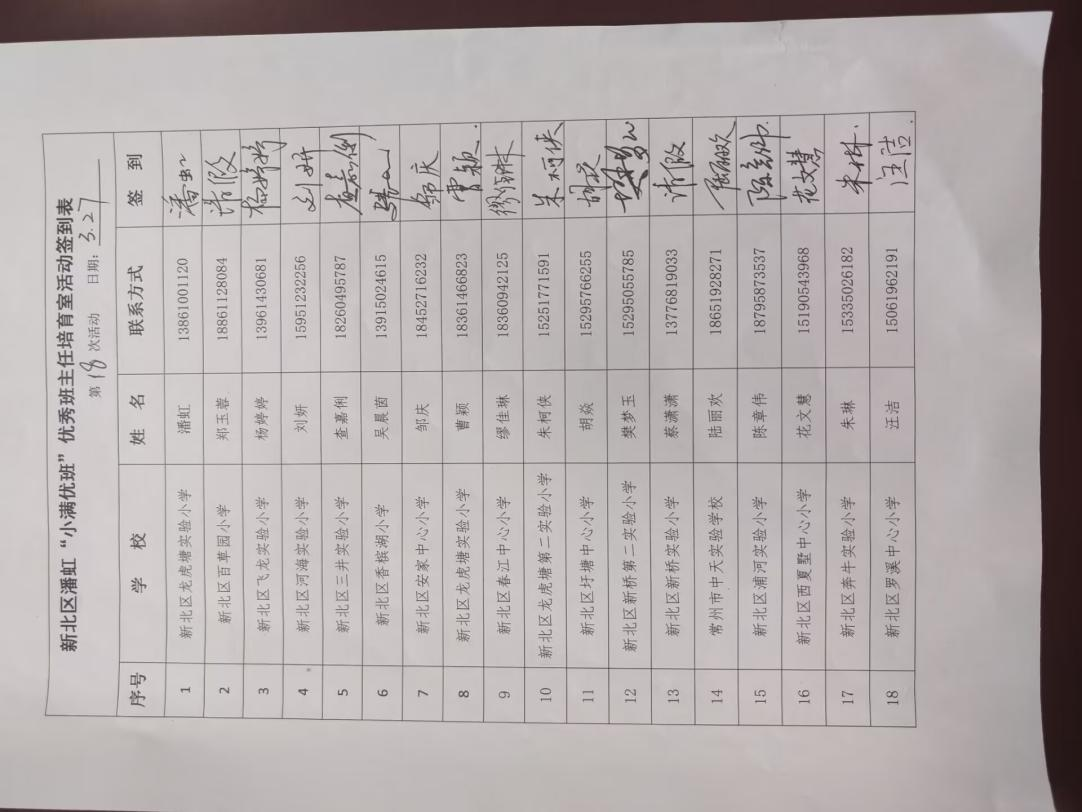 新北区潘虹“小满优班”优秀班主任培育室活动签到表
第 18 次活动 日期：3.27
序号 学 校 姓 名 联系方式 签 到
1 新北区龙虎塘实验小学 潘虹 13861001120 潘虹
2 新北区百草园小学 郑玉蓉 18861128084 请假
3 新北区飞龙实验小学 杨婷婷 13961430681 杨婷婷
4 新北区河海实验小学 刘妍 15951232256 刘妍
5 新北区三井实验小学 查嘉俐 18260495787 查嘉俐
6 新北区香槟湖小学 吴晨茵 13915024615
7 新北区安家中心小学 邹庆 18452716232 邹庆
8 新北区龙虎塘实验小学 曹颖 18361466823 曹颖.
9 新北区春江中心小学 缪佳琳 18360942125 缪佳琳
10 新北区龙虎塘第二实验小学 朱柯侠 15251771591 朱柯侠
11 新北区圩塘中心小学 胡焱 15295766255 胡焱
12 新北区新桥第二实验小学 樊梦玉 15295055785 樊梦玉
13 新北区新桥实验小学 蔡潇潇 13776819033 请假
14 常州市中天实验学校 陆丽欢 18651928271 陆丽欢
15 新北区浦河实验小学 陈章伟 18795873537 陈章伟.
16 新北区西夏墅中心小学 花文慧 15190543968 花文慧
17 新北区奔牛实验小学 朱琳 15335026182 朱琳.
18 新北区罗溪中心小学 汪洁 15061962191 汪洁.